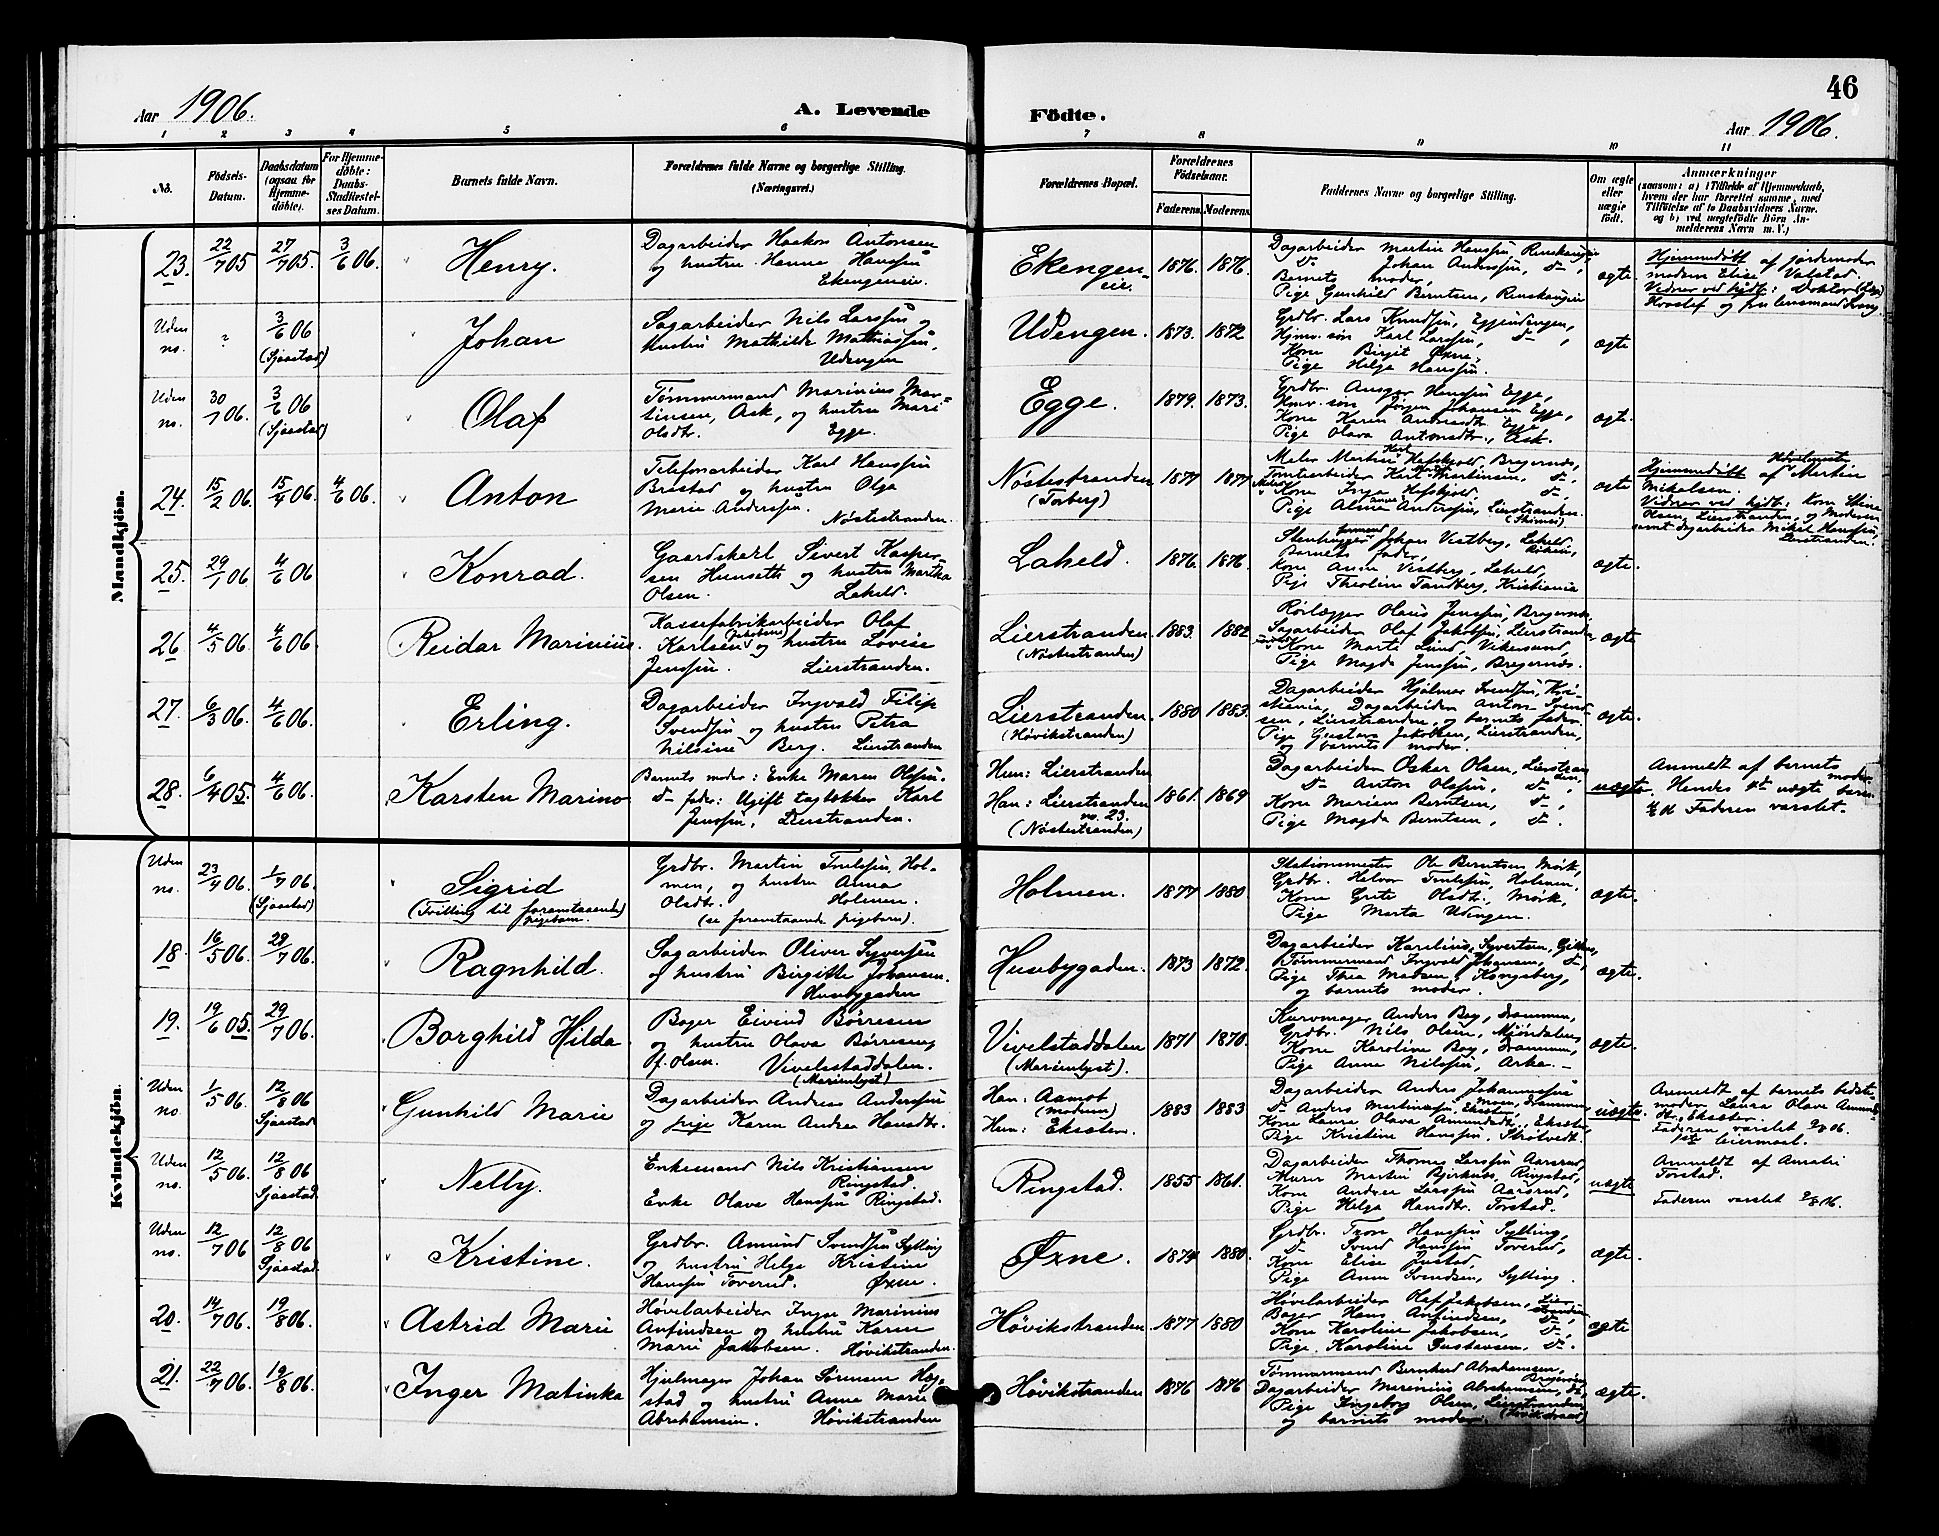 46
Aar 1906. A. Levende Födte. Aar 1906.
1 2 3 4 5 6 7 8 9 10 11
No.
Födsels-
Datum.
Daabsdatum
(ogsaa for
Hjemme-
döbte).
For Hjemme-
döbte:
Daabs-
Stadfæstel-
ses Datum.
Barnets fulde Navn.
Forældrenes fulde Navne og borgerlige Stilling.
(Næringsvei.)
Forældrenes Bopæl.
Forældrenes
Födselsaar.
Faderens. Moderens.
Faddernes Navne og borgerlige Stilling.
Om ægte
eller
uægte
födt.
Anmærkninger
(saasom: a) i Tilfælde af Hjemmedaab,
hvem der har forrettet samme, med
Tilföielse af to Daabsvidners Navne,
og b) ved uægtefödte Börn An-
melderens Navn m. V.)
Mandkjön.
23. 22/7 05 27/7 05. 3/6 06. Henry.
Dagarbeider Haakon Antonsen
og hustru Hanna Hanssen
Ekengeneie.
Ekengen-
eie.
1876. 1876.
Dagarbeider Martin Hanssen, Renskaugeie
d- Johan Anderssen, d-,
Barnets moder,
Pige Gunhild Berntsen, Renskaugeie
ægte.
Hjemmedøbt af jordemoder
madam Elise Valstad.
Vidner ved hjdb: Doktor
Hovstef og fru lensmand
Uden
no.
3/6 06
(Sjaastad)
Johan
Sagarbeider Nils Larssen og
hustru Mathilde Mathiassen,
Udengen
Udengen. 1873. 1872
Grdbr. Lars Knudsen, Eggeudengen,
Hjmv. søn Karl Larssen, d-,
Kone Birgit Øxne,
Pige Helga Hanssen.
ægte
Uden
no.
30/7 06. 3/6 06
(Sjaastad)
Olaf
Tømmermand Marinius Mar-
tinsen, Ask, og hustru Mari
Olsdtr. Egge.
Egge. 1879. 1873.
Grdbr. Ansgar Hanssen Egge,
Hmv. søn Jørgen Johansen Egge,
Kone Karen Andreasdtr. Egge
Pige Olava Antonsdtr., Ask.
ægte.
24. 15/2 06. 15/4 06. 4/6 06. Anton
Telefonarbeider Karl Hanssen
Brustad og hustru Olga
Marie Anderssen.
Nøstestranden.
Nøstestranden
(Toberg)
1877 1877
Maler Martin Hefskjold, Bragernæs,
Tomtearbeider Karl Martinsen, d-,
Kone Inga Hefskjold, d-,
Pige Alma Anderssen, Lierstranden.
ægte
Hjemmedøbt af Martin
Mikalsen.
Vidner ved hjdb: Kone Stine
Olsen, Lierstranden, og Moderen
samt dagarbeider Mikal Hanssen,
Lierstranden.
25. 29/1 06 4/6 06 Konrad.
Gaardskarl Sivert Kasper-
sen Hunseth og hustru Martha
Olsen. Lakeld.
Lakeld. 1876. 1876.
Stenhugger Johan Vestberg, Lakeld
Barnets fader,
Kone Anna Vestberg, Lakeld,
Pige Theoline Tandberg, Kristiania
ægte.
26 4/5 06. 4/6 06. Reidar Marinius.
Kassefabrikarbeider Olaf
Karlsen Jakobsen og hustru Lovise
Jenssen. Lierstranden.
Lierstranden.
(Nøstestranden)
1883. 1882.
Rørlægger Olaus Jenssen, Bragernæs
Sagarbeider Olaf Jakobsen, Lierstranden
Kone Marte Lund, Vikersund,
Pige Magda Jenssen, Bragernæs.
ægte
27. 6/3 06. 4/6 06. Erling.
Dagarbeider Ingvald Filip
Svendsen og hustru Petra
Nilsine Berg. Lierstranden
Lierstranden.
(Høvikstranden)
1880 1883.
Dagarbeider Hjalmar Svendsen, Kri-
stiania, Dagarbeider Anton Svend-
sen, Lierstranden, og barnets fader.
Pige Gustava Jakobsen, Lierstranden,
og barnets moder.
ægte.
28. 6/4 05. 4/6 06. Karsten Marino
Barnets moder: Enke Maren Olssen.
d- fader: Ugift taglækker Karl
Jenssen, Lierstranden.
Hun: Lierstranden
Han: Lierstranden
no. 23.
(Nøstestranden)
1861. 1869
Dagarbeider Oskar Olsen, Lierstran-
den,
d- Anton Olssen, d-,
Kone Mariane Berntsen, d-,
Pige Magda Berntsen, d-.
uægte.
Anmeldt af barnets
moder. Hendes 4de uægte barn
Faderen varslet.
Kvindekjön.
Uden
no.
23/4 06. 1/7 06.
(Sjaastad)
Sigrid
(Tvilling til foranstaaende)
pigebarn.
Grdbr. Martin Trulssen, Hol-
men, og hustru Anna
Olsdtr. Holmen.
(se foranstaaende pigebarn).
Holmen. 1877 1880.
Stationsmester Ole Berntsen Mørk,
Grdbr. Helvor Trulssen, Holmen,
Kone Grete Olsdtr. Mørk,
Pige Marta Udengen.
ægte.
18. 16/5 06. 29/7 06. Ragnhild.
Sagarbeider Oliver Syversen
og hustru Birgitte Johansen.
Husebygaden
Husebygaden. 1873 1872.
Dagarbeider Karelius Syvertsen,
Tømmermand Ingvald Johansen, d-,
Pige Thea Madsen, Kongsberg,
og barnets moder.
ægte.
19. 19/6 05. 29/7 06. Borghild Hilda
Bager Eivind Børresen
og hustru Olava Børresen
f. Olsen. Vivelstaddalen.
(Marienlyst)
Vivelstaddalen
(Marienlyst).
1871 1870.
Kurvmager Anders Bøy, Drammen,
Grdbr. Nils Olsen, Mjøndalen,
Kone Karoline Bøy, Drammen,
Pige Anna Nilssen, Asker.-
ægte.
Uden
no.
1/5 06. 12/8 06
Sjaastad
Gunhild Marie
Dagarbeider Andreas Anderssen
og pige Karen Andrea Hansdtr.
Han: Aamot
(Modum)
Hun: Eksæter.
1883 1883
Dagarbeider Anders Johannessen
d- Anders Martinssen, Eksæter,
Kone Laura Olava Amundsdtr. Eksæter,
Pige Kristine Hanssen, Strøtvedt.
uægte.
Anmeldt af barnets bedste-
moder Laura Olava Amunds-
dtr. Eksæter.
Faderen varslet 2/8 06.
1ste leiermaal.
Uden
no.
12/5 06. 12/8 06
Sjaastad.
Nelly.
Enkemand Nils Kristiansen
Ringstad.
Enke Olava Hanssen Ringstad.
Ringstad. 1855 1861.
Dagarbeider Thomas Larssen Aarsrud,
Murer Martin Bjerknes, Ringstad,
Kone Andrea Larssen Aarsrud,
Pige Helga Hansdtr. Torstad.
uægte
Anmeldt af Amalie
Torstad.
Faderen varslet 2/8 06.
Uden
no.
12/7 06 12/8 06
Sjaastad.
Kristine.
Grdbr. Amund Svendsen Sylling
og hustru Helga Kristine
Hanssen Toverud. Øxne.
Øxne. 1874 1880.
Grdbr. Tron Hanssen Sylling,
d- Svend Hanssen Toverud,
Kone Elise Justad,
Pige Anna Svendsen, Sylling.
ægte.
20. 14/7 06. 19/8 06. Astrid Marie
Høvelarbeider Inge Marinius
Arfindsen og hustru Karen
Marie Jakobsen. Høvikstranden.
Høvikstranden 1877 1880
Høvelarbeider Olaf Jakobsen, Lier-
stranden,
Bager Hans Arfindsen, d-,
Kone Karoline Jakobsen, d-,
Pige Karoline Gustavsen, d-.
ægte
21. 22/7 06. 19/8 06. Inger Matinka
Hjulmager Johan Sørensen Hæg-
stad og hustru Anna Marie
Abrahamsen. Høvikstranden
Høvikstranden 1876 1876
Tømmermand Bernhard Abrahamsen,
Dagarbeider Marinius Abrahamsen, d-,
Pige Ingeborg Olsen, Lierstranden
og barnets moder. (Høvikstrand)
ægte.